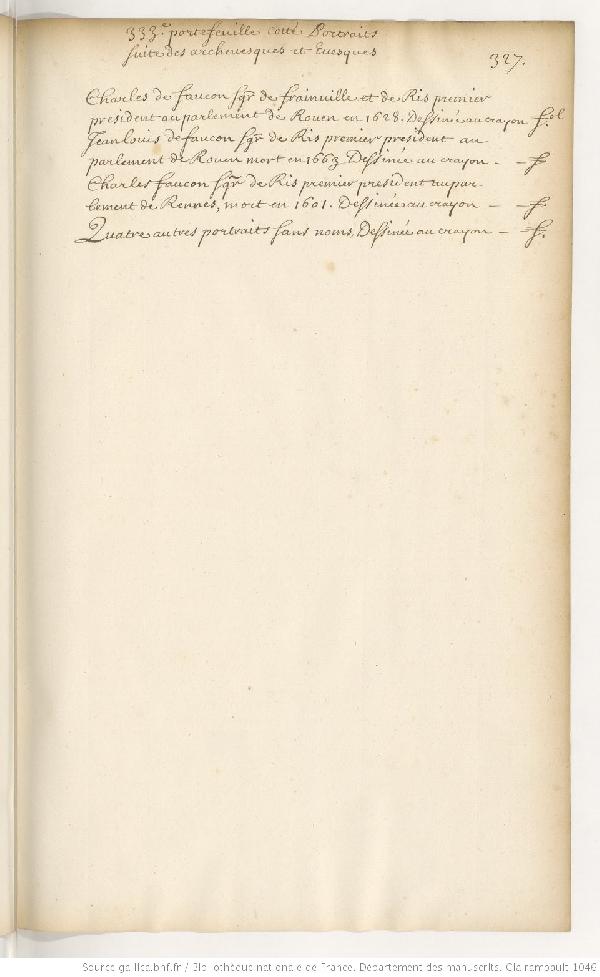 333.e portefeuille cotté Portraits
suite des archevesques et Evesques
327.
Charles de faucon sgr de frainville et de Ris premier
president au parlement de Rouen en 1628. Dessiné au crayon fol
Jean louis de faucon sgr de Ris premier president au
parlement de Rouen mort en 1663 Dessinée au crayon - - f
Charles faucon sgr de Ris premier president au par-
lement de Rennes, mort en 1601. Dessinée au crayon - - f.
Quatre autres portraits sans noms, Dessiné au crayon - - f.
Source gallica.bnf.fr / Bibliothèque nationale de France. Département des manuscrits. Clairambault 1046